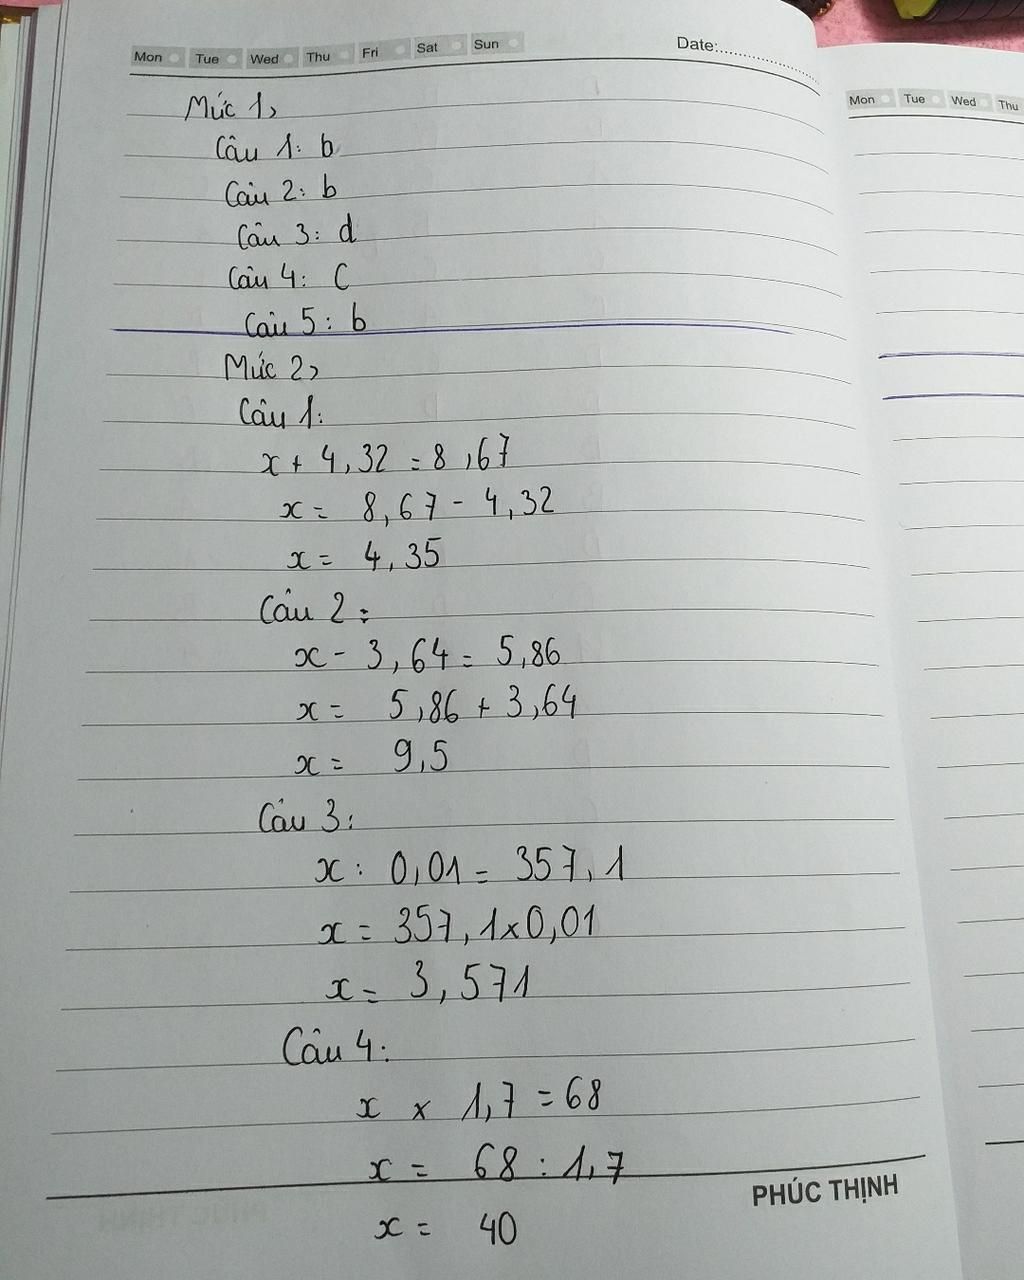 Mon Tue Wed Thu Fri Sat Sun Date:
Mức 1,
Câu 1: b
Câu 2: b
Câu 3: d
Câu 4: C
Câu 5: b
Mức 2,
Câu 1:
x + 4,32 = 8,67
x = 8,67 - 4,32
x = 4,35
Câu 2:
x - 3,64 = 5,86
x = 5,86 + 3,64
x = 9,5
Câu 3:
x : 0,01 = 357,1
x = 357,1 x 0,01
x = 3,571
Câu 4:
x x 1,7 = 68
x = 68 : 1,7
PHÚC THỊNH
x = 40
Mon Tue Wed Thu